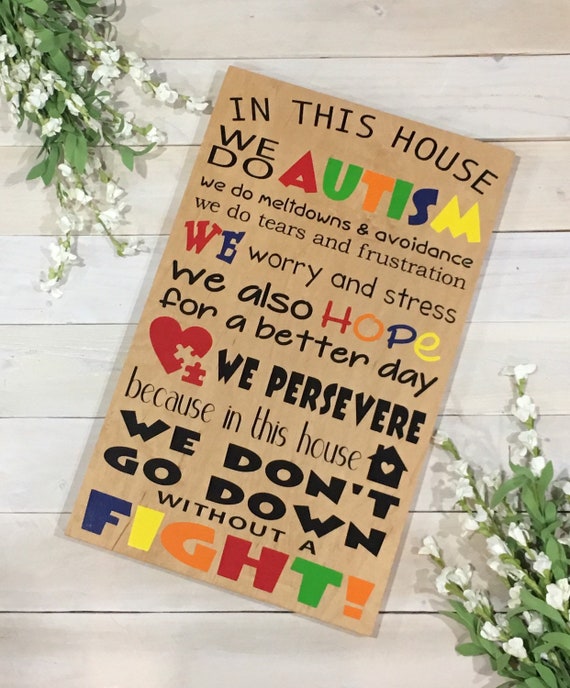 IN THIS HOUSE
WE DO AUTISM
we do meltdowns & avoidance
we do tears and frustration
WE worry and stress
we also HOPe
for a better day
WE PERSEVERE
because in this house
WE DON'T
GO DOWN
WITHOUT A
FIGHT!